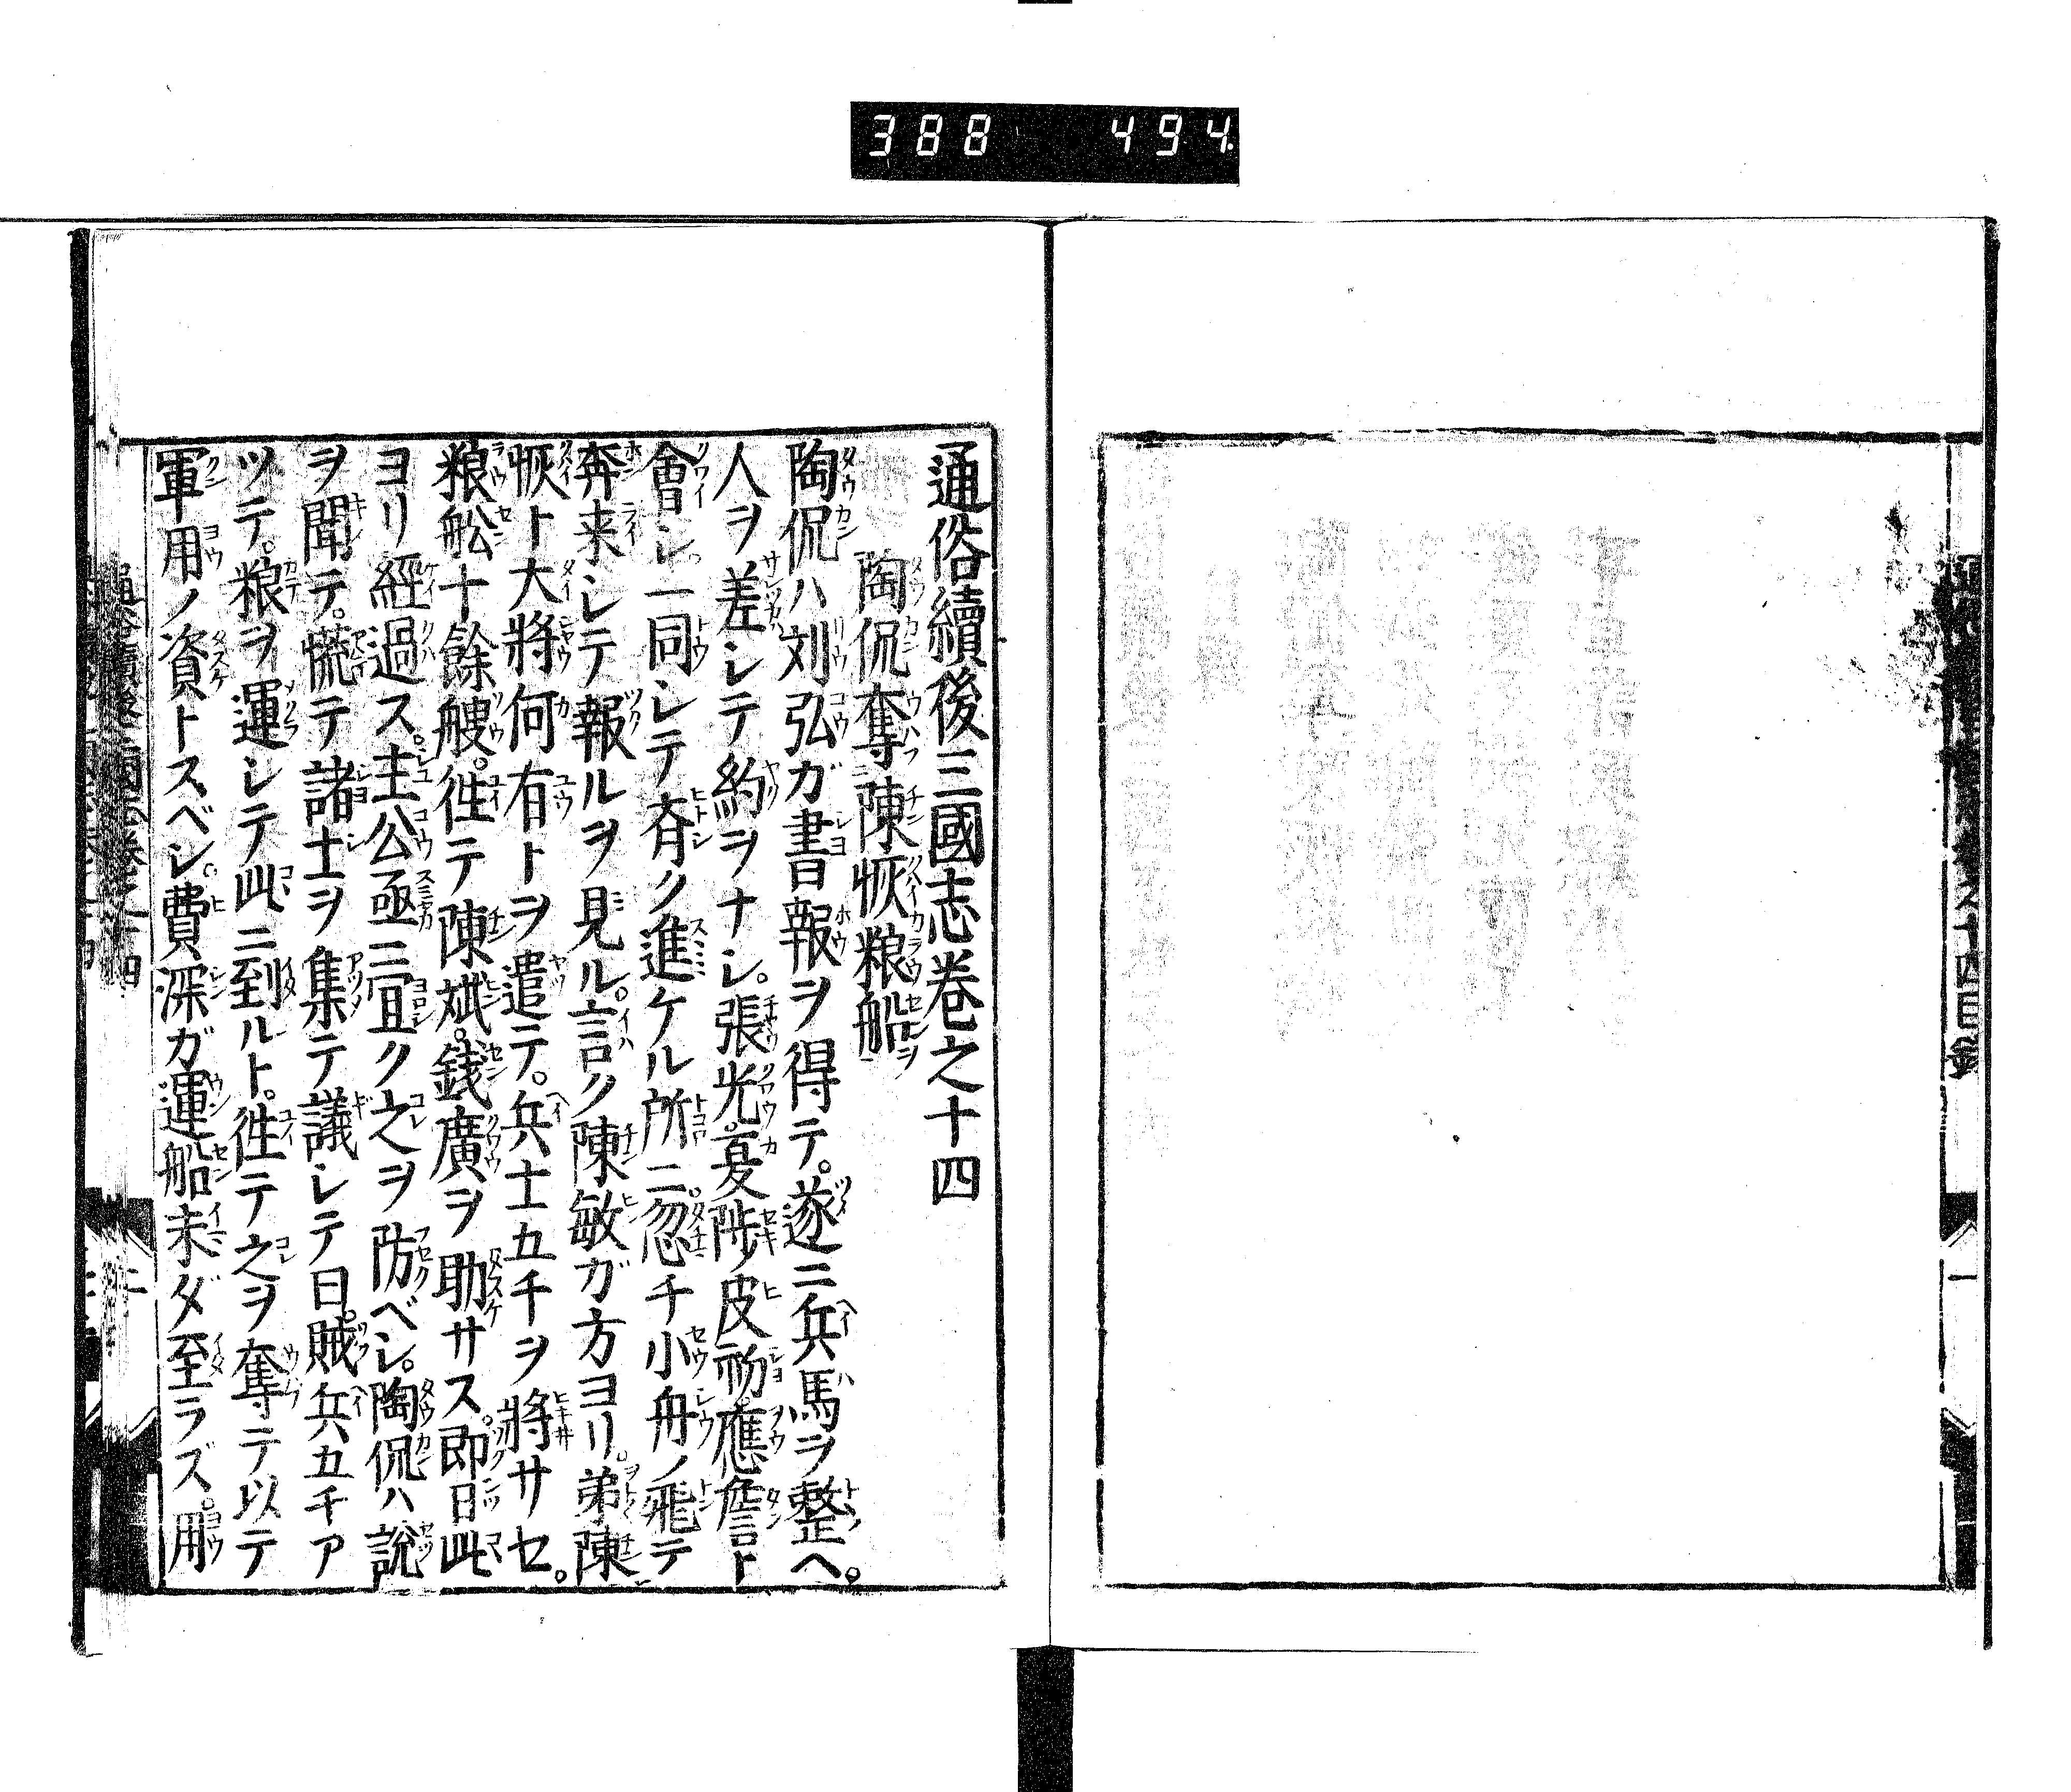 388 494
通俗續後三國志卷之十四
陶侃奪陳恢粮船
陶侃ハ刘弘ガ書報ヲ得テ。遂ニ兵馬ヲ整ヘ。
人ヲ差シテ約ヲナシ。張光。夏陟。皮初。應詹ト
會シ。一同シテ斉ク進ケル所ニ。忽チ小舟ノ飛テ
奔来シテ報ルヲ見ル。言ク陳敏ガ方ヨリ。弟陳
恢ト大將何有トヲ遣テ。兵士五千ヲ將サセ。
粮舩十餘艘。徃テ陳斌。銭廣ヲ助サス。即日此
ヨリ經過ス。主公亟ニ宜ク之ヲ防ベシ。陶侃ハ説
ヲ聞テ。慌テ諸士ヲ集テ議シテ曰。賊兵五千ア
ツテ。粮ヲ運シテ此ニ到ルト。徃テ之ヲ奪テ以テ
軍用ノ資トスベシ。費深ガ運船未ダ至ラズ。用